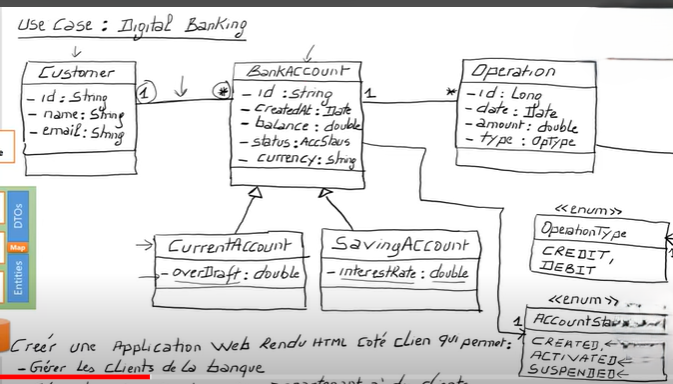 Use Case : Digital Banking
Customer
- id : String
- name : String
- email : String
1
*
BankAccount
- id : String
- CreatedAt : Date
- balance : double
- status : AccStaus
- currency : String
1
*
Operation
- id : Long
- date : Date
- amount : double
- type : OpType
CurrentAccount
- overDraft : double
SavingAccount
- interestRate : double
<<enum>>
OperationType
CREDIT,
DEBIT
<<enum>>
1
CREATED,
ACTIVATED
SUSPENDED
DTOs
Map
Entities
Creér une Application Web Rendu HTML Coté Clien qui permet :
- Gérer Les clients de La banque